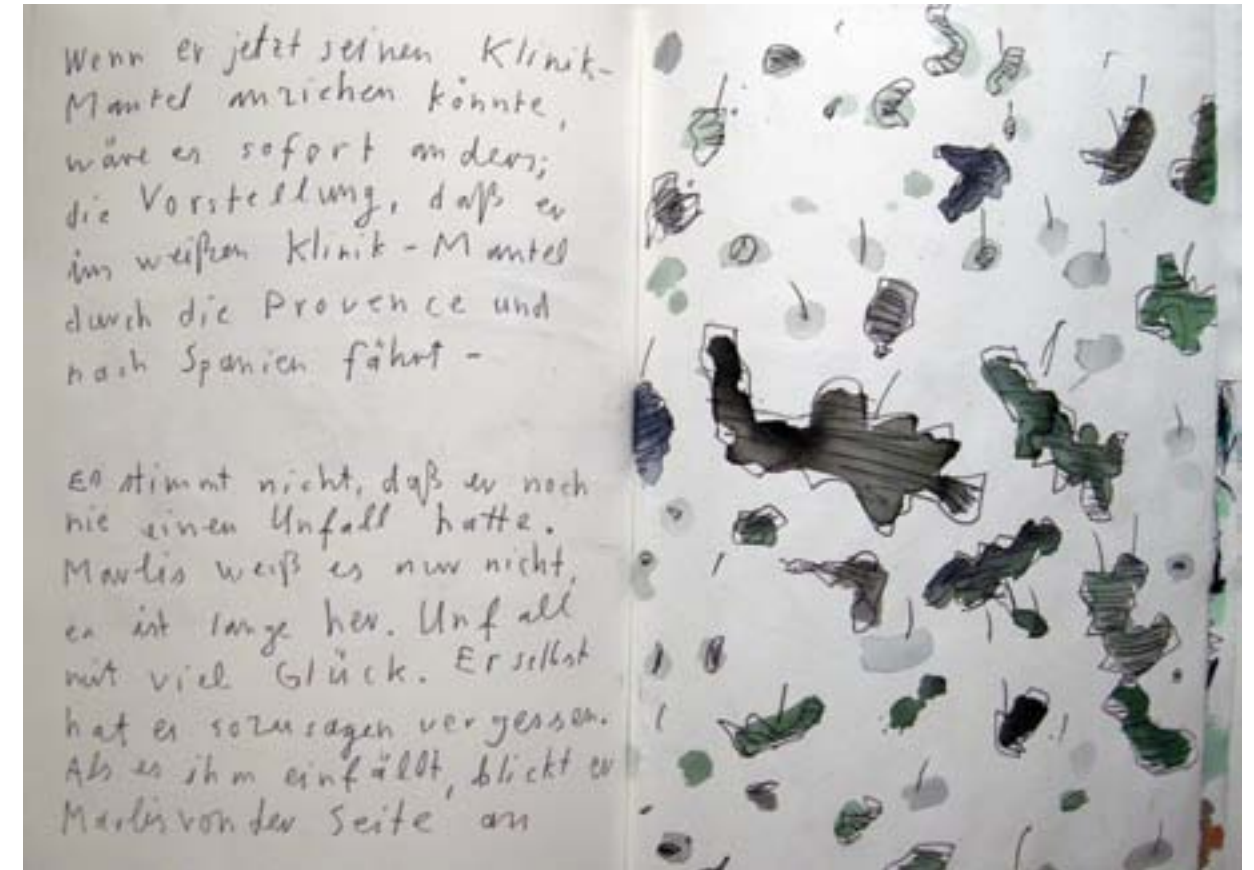 Wenn er jetzt seinen Klinik-
Mantel anziehen könnte,
wäre es sofort anders;
die Vorstellung, daß er
im weißen Klinik-Mantel
durch die Provence und
nach Spanien fährt -
Es stimmt nicht, daß er noch
nie einen Unfall hatte.
Marlis weiß es nur nicht,
es ist lange her. Unfall
mit viel Glück. Er selbst
hat es sozusagen vergessen.
Als es ihm einfällt, blickt er
Marlis von der Seite an